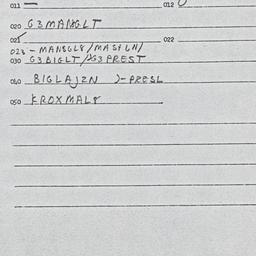 011 012
020 G3MANGLT
021 022
023 - MANSGL8/MASFLN/
030 G3BIGLT/2G3PREST
040 BIGLAJZN )-PRESL
050 KROXMAL8